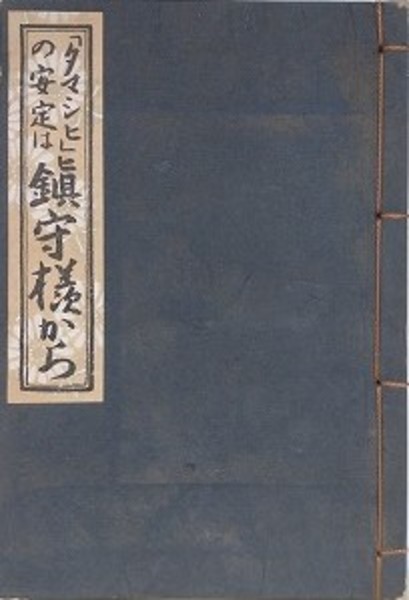 「タマシヒ」ヒ
の安定は
鎮守様から